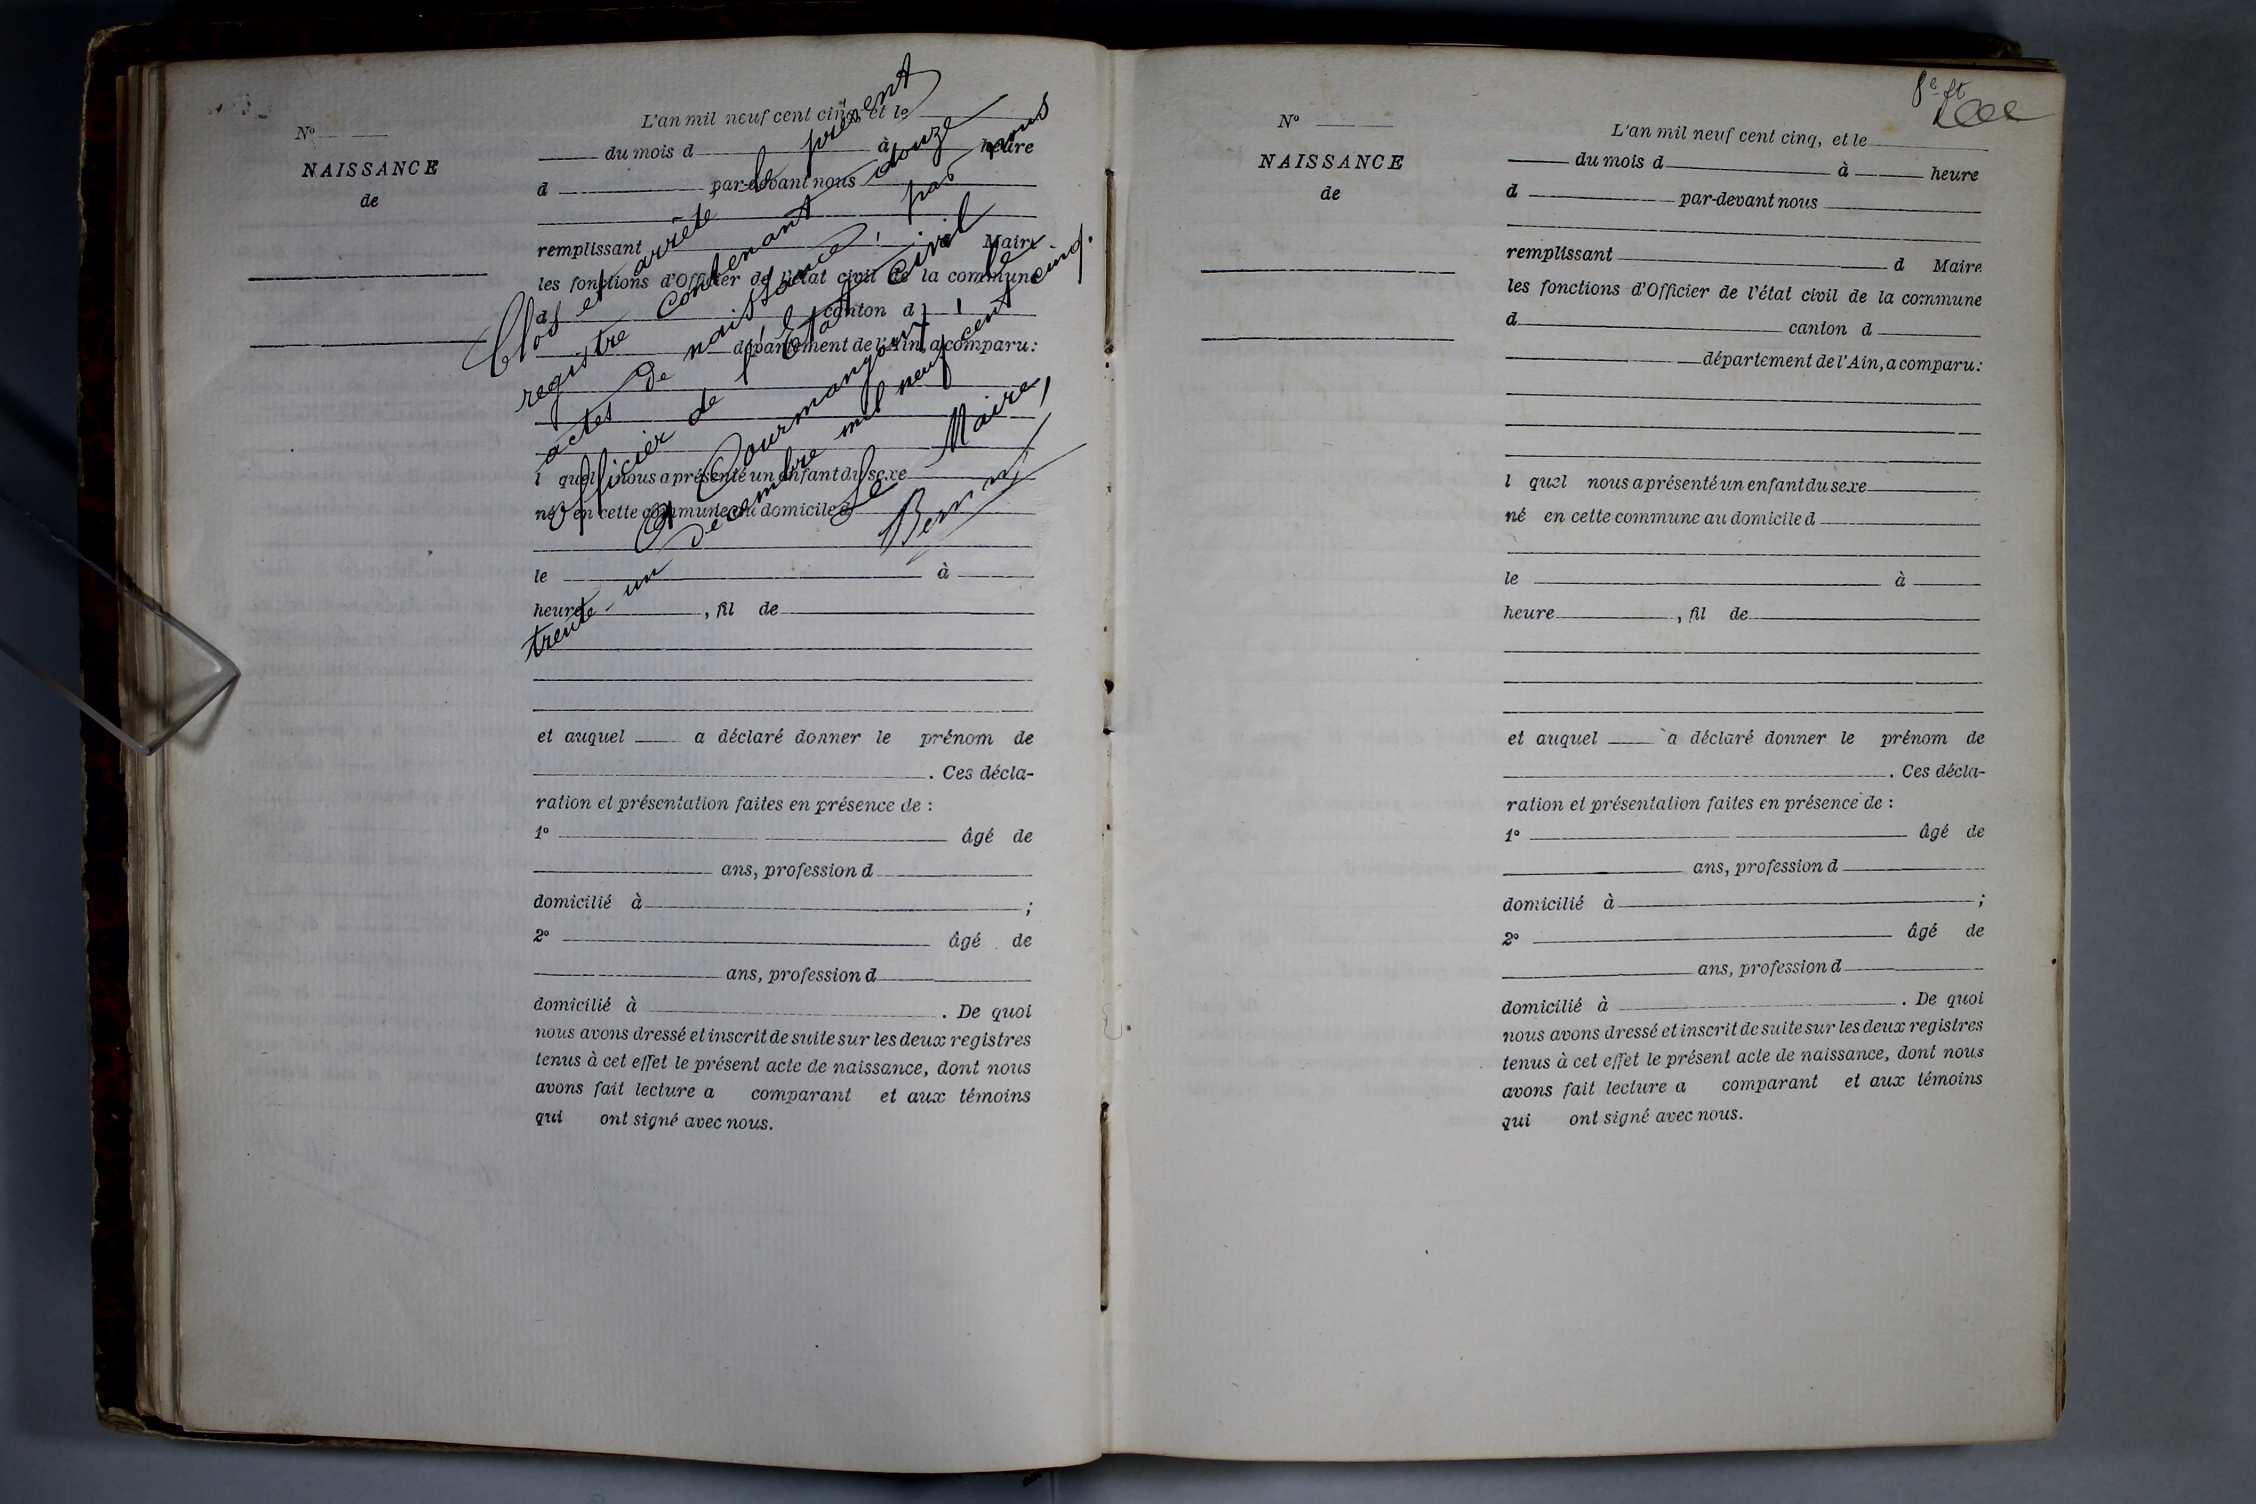 N°
NAISSANCE
de
L'an mil neuf cent cinq, et le
du mois d à heure
d par-devant nous
remplissant d Maire
les fonctions d'Officier de l'état civil de la commune
d canton d
département de l'Ain, a comparu :
l quel nous a présenté un enfant du sexe
né en cette commune au domicile d
le à
heure , fil de
et auquel a déclaré donner le prénom de
. Ces décla-
ration et présentation faites en présence de :
1° âgé de
ans, profession d
domicilié à ;
2° âgé de
ans, profession d
domicilié à . De quoi
nous avons dressé et inscrit de suite sur les deux registres
tenus à cet effet le présent acte de naissance, dont nous
avons fait lecture a comparant et aux témoins
qui ont signé avec nous.
Clos et arrêté le présent
registre contenant douze
actes de naissance, par nous
officier de l'Etat civil
A Courmangoux, le
trente un décembre mil neuf cent cinq.
Le Maire,
8e ft
N°
NAISSANCE
de
L'an mil neuf cent cinq, et le
du mois d à heure
d par-devant nous
remplissant d Maire
les fonctions d'Officier de l'état civil de la commune
d canton d
département de l'Ain, a comparu :
l quel nous a présenté un enfant du sexe
né en cette commune au domicile d
le à
heure , fil de
et auquel a déclaré donner le prénom de
. Ces décla-
ration et présentation faites en présence de :
1° âgé de
ans, profession d
domicilié à ;
2° âgé de
ans, profession d
domicilié à . De quoi
nous avons dressé et inscrit de suite sur les deux registres
tenus à cet effet le présent acte de naissance, dont nous
avons fait lecture a comparant et aux témoins
qui ont signé avec nous.